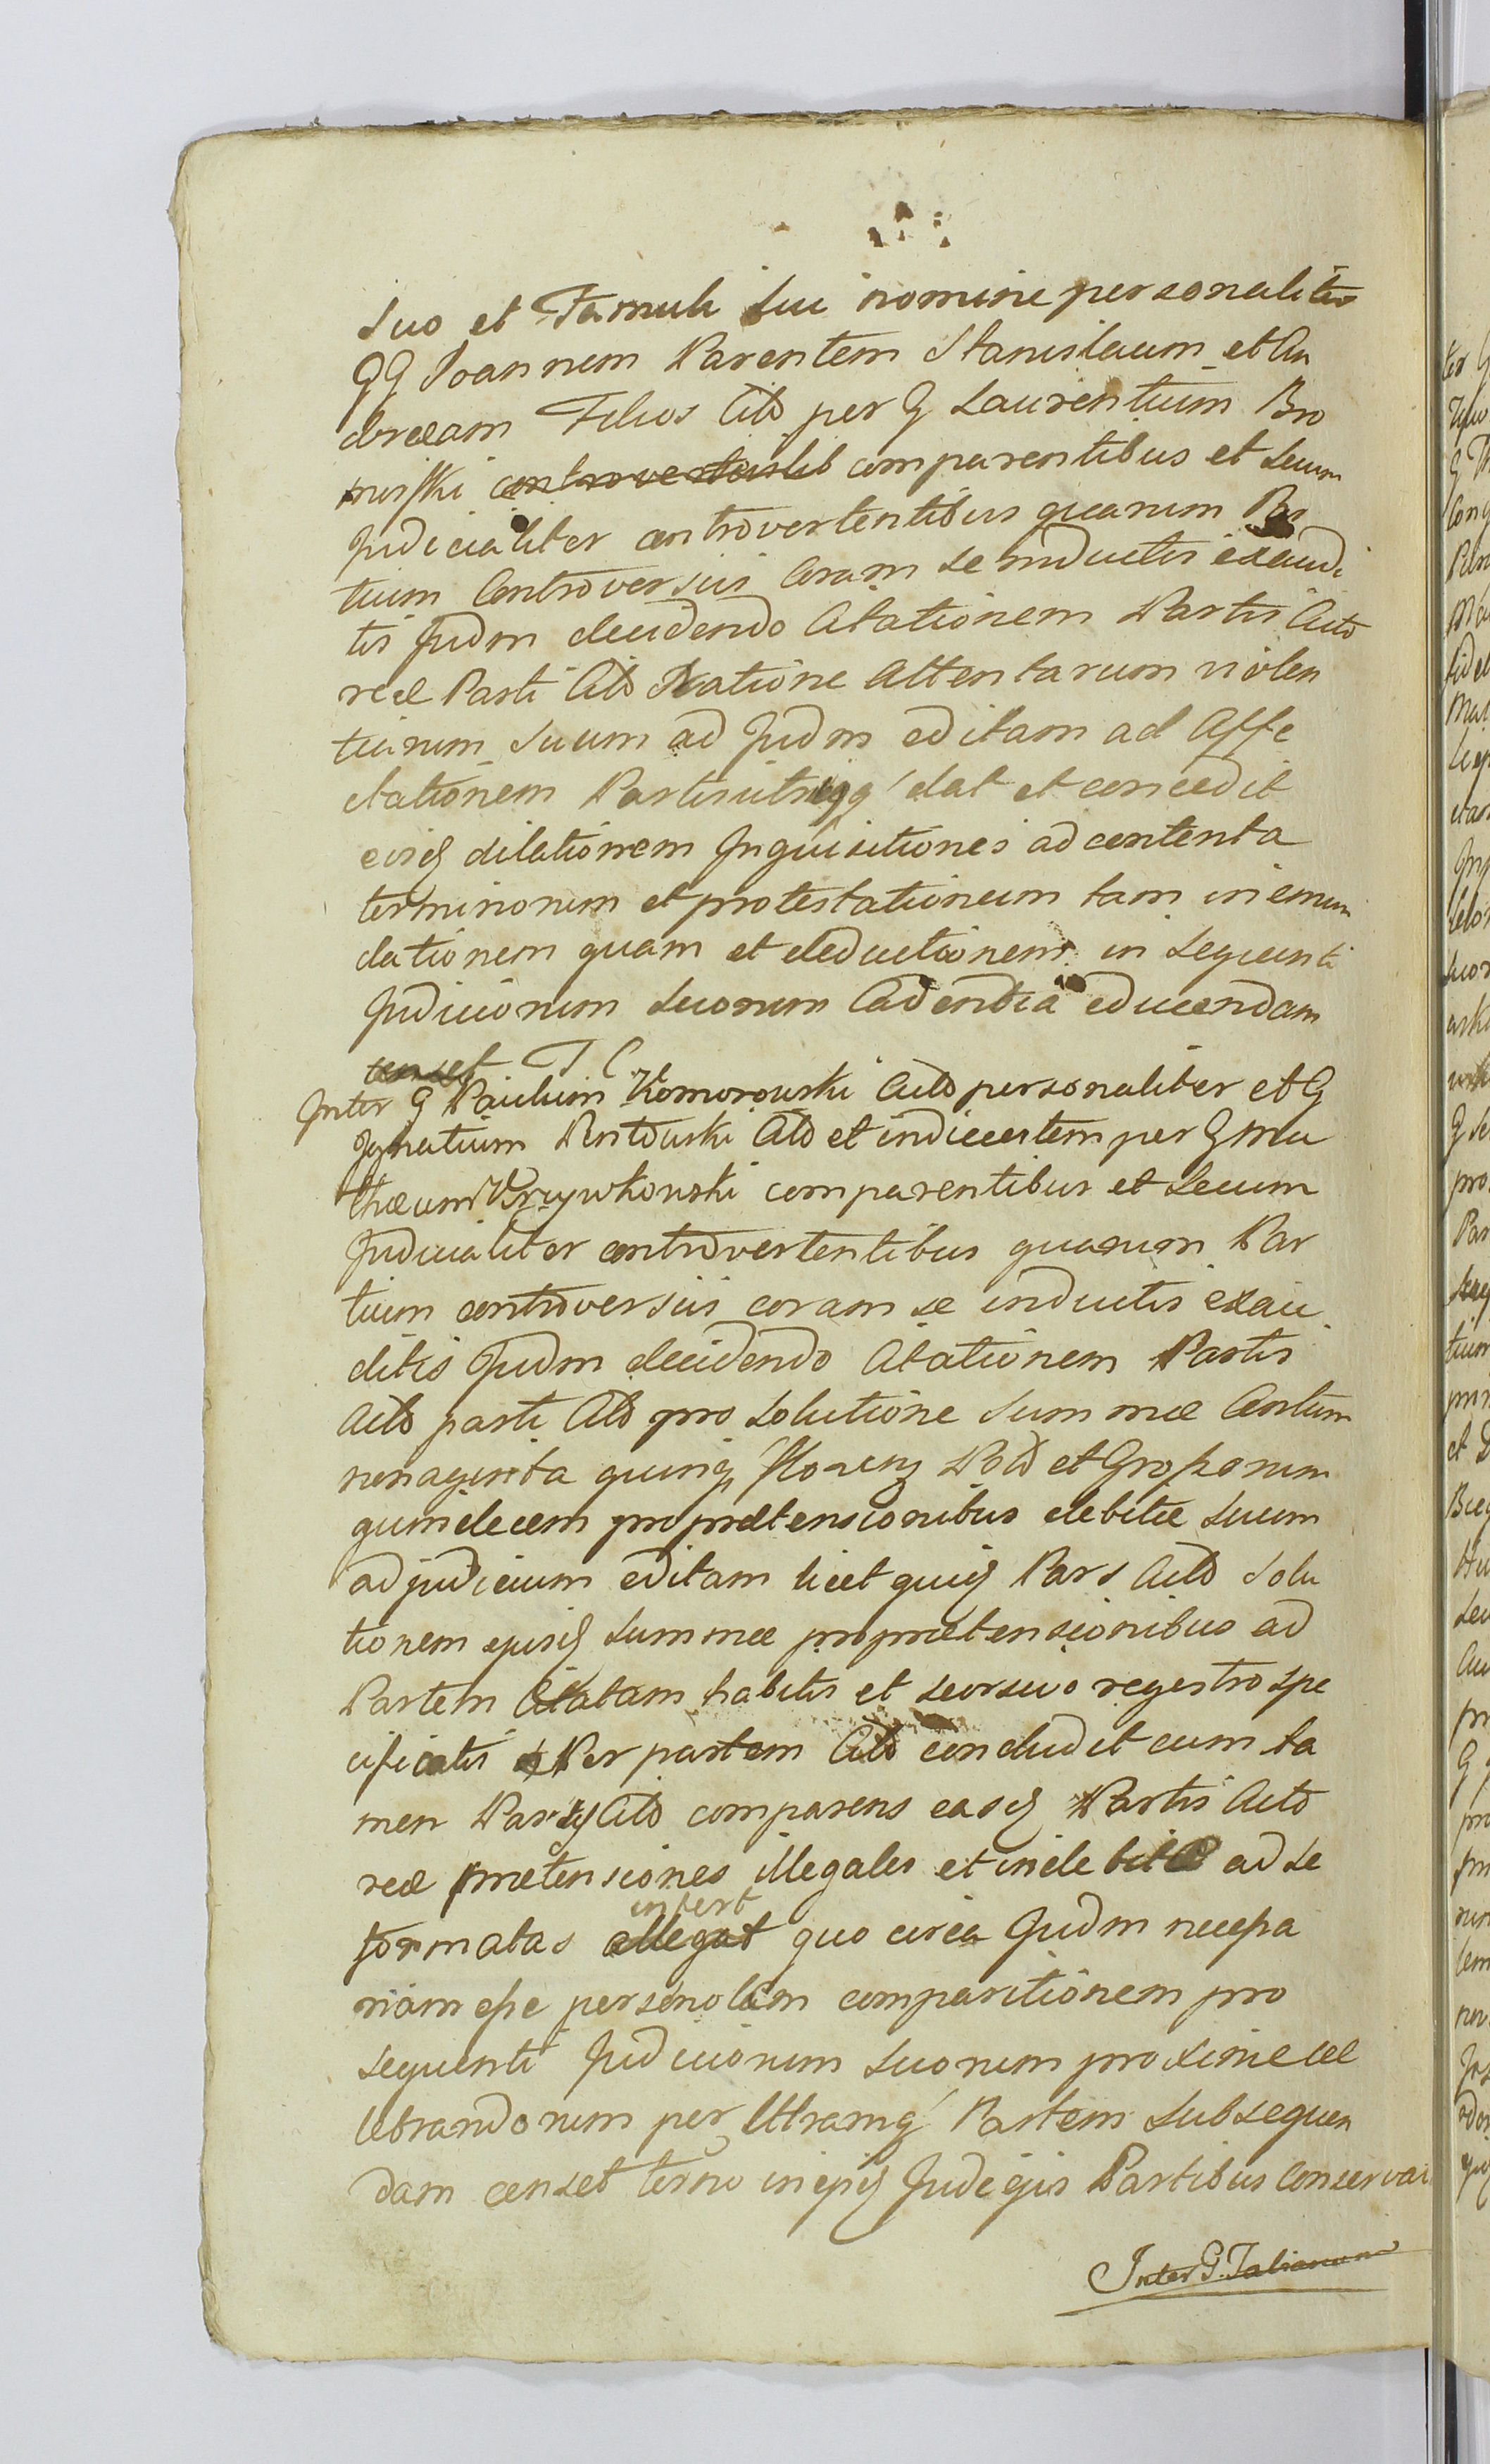 suo et Famuli sui nomine personaliter
GG Joannem Parentem Stanislaum et An
dream Filios Citō per G Laurentium Bro
niʃski comparentibus et secum
Judicialiter controvertentibus quarum Par
tium Controversiis Coram se inductis exaudi
tis Judm decidendo Citationem Partis Acto
reæ Parti Citō Ratione Attentarum violen
tiarum suum ad Judm editam ad Affe
ctationem Partis utriusqq dat et concedit
eisd dilationem Inquisitiones ad contenta
terminorum et protestationum tam in emun
dationem quam et deductionem in sequenti
Judiciorum suorum Cadentia educendam
censet T C
Inter G Paulum Komorowski Actō personaliter et G
Ignatium Citō et indicentem per G Mat
thæum Przywkowski comparentibus et secum
Judicialiter controvertentibus quarum Par
tium controversiis coram se inductis exau
ditis Judm decidendo Citationem Partis
Actō parti Citō pro solutione summæ Centum
nonaginta quinq floreng Pol et Groʃsorum
quindecem pro prætensionibus debitæ suum
ad judicium editam licet quid Pars Actō solu
tionem ejusd summæ pro prætensionibus ad
Partem Citatam habitis et seorsivo regestro spe
cificatis Per partem Citō concludit cum ta
men Pars Citō comparens easd Partis Acto
reæ prætensiones illegales et indebite ad se
infert
formatas allegat quo circa Judm neceʃsa
riam eʃse personalem comparitionem pro
sequenti Judiciorum suorum proxime ce
lebrandorum per Utramq Partem subsequen
dam censet termo in ejusd Judiciis Partibus conservato
Inter G. Fabianum